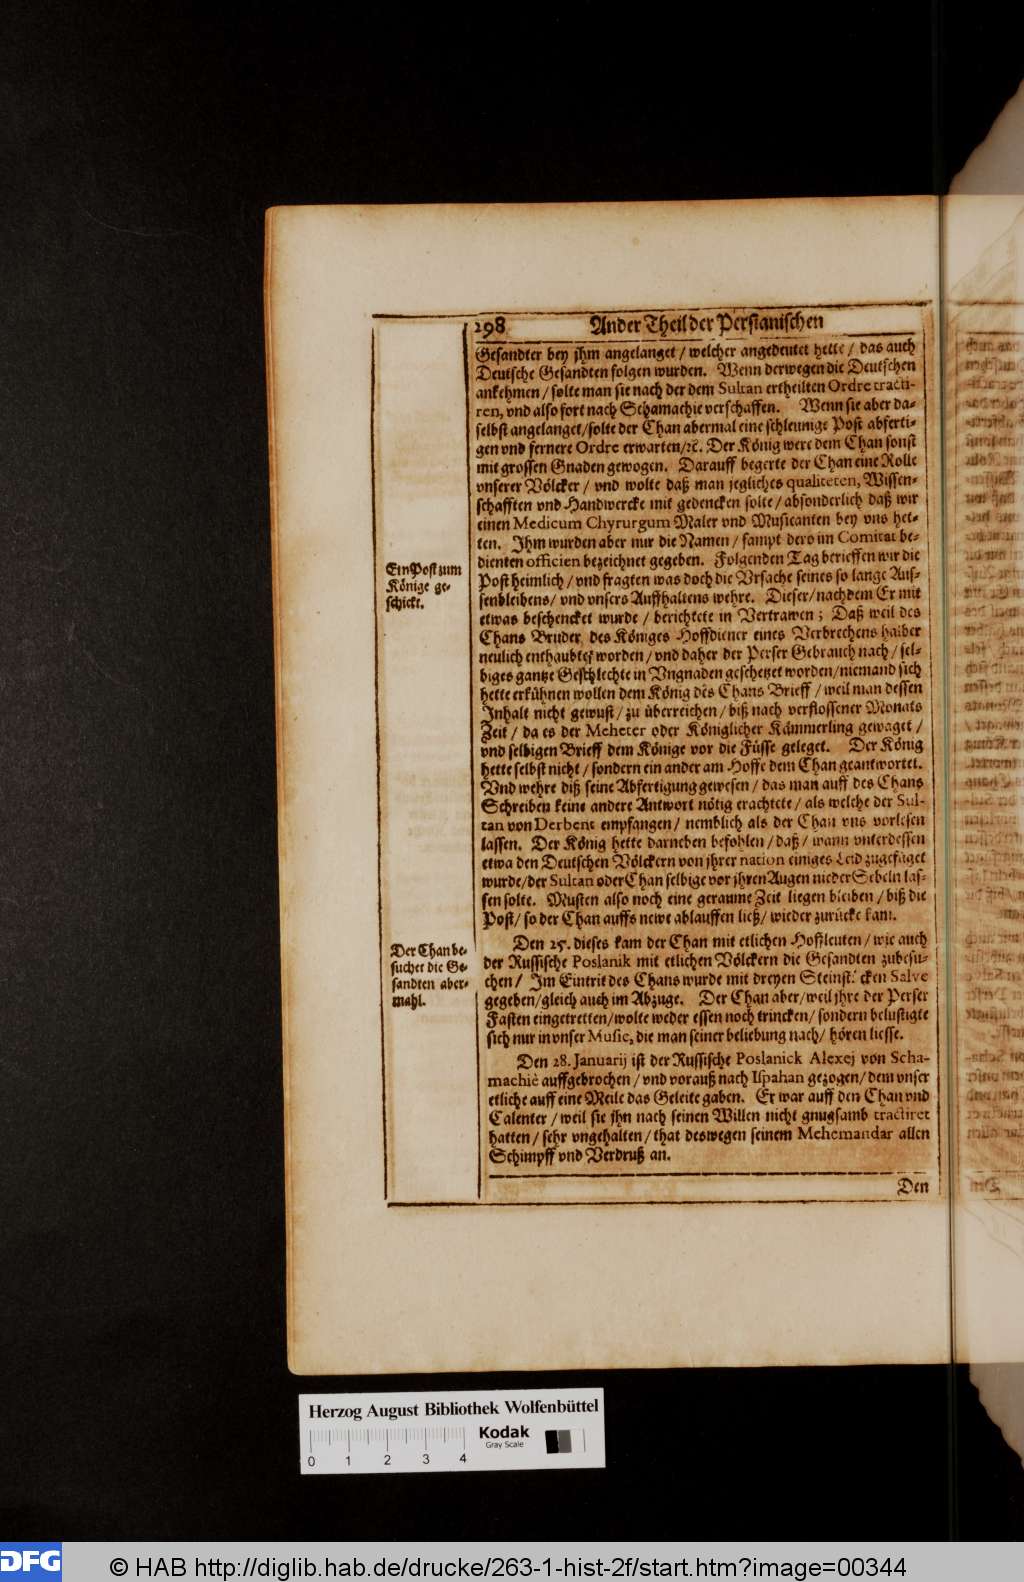 298 Ander Theil der Persianischen
Gesandter bey jhm angelanget / welcher angedeutet hette / das auch
Deutsche Gesandten folgen wurden. Wenn derwegen die Deutschen
ankehmen / solte man sie nach der dem Sultan ertheilten Ordre tracti-
ren, vnd also fort nach Schamachie verschaffen. Wenn sie aber da-
selbst angelanget / solte der Chan abermal eine schleunige Post abferti-
gen vnd fernere Ordre erwarten / ꝛc. Der König were dem Chan sonst
mit grossen Gnaden gewogen. Darauff begerte der Chan eine Rolle
vnserer Völcker / vnd wolte daß man jegliches qualiteten, Wissen-
schafften vnd Handwercke mit gedencken solte / absonderlich daß wir
einen Medicum Chyrurgum Maler vnd Musicanten bey vns het-
ten. Jhm wurden aber nur die Namen / sampt dero im Comitat be-
dienten officien bezeichnet gegeben. Folgenden Tag berieffen wir die
Post heimlich / vnd fragten was doch die Vrsache seines so lange Aus-
senbleibens / vnd vnsers Auffhaltens wehre. Dieser / nachdem Er mit
etwas beschencket wurde / berichtete in Vertrawen ; Daß weil des
Chans Bruder des Königes Hoffdiener eines Verbrechens halber
neulich enthaubtet worden / vnd daher der Perser Gebrauch nach / sel-
biges gantze Geschlechte in Vngnaden geschetzet worden / niemand sich
hette erkühnen wollen dem König des Chans Brieff / weil man dessen
Jnhalt nicht gewust / zu überreichen / biß nach verflossener Monats
Zeit / da es der Meheter oder Königlicher Kämmerling gewaget /
vnd selbigen Brieff dem Könige vor die Füsse geleget. Der König
hette selbst nicht / sondern ein ander am Hoffe dem Chan geantwortet.
Vnd wehre diß seine Abfertigung gewesen / das man auff des Chans
Schreiben keine andere Antwort nötig erachtete / als welche der Sul-
tan von Derbent empfangen / nemblich als der Chan vns vorlesen
lassen. Der König hette darneben befohlen / daß / wann vnterdessen
etwa den Deutschen Völckern von jhrer nation einiges Leid zugefüget
wurde / der Sultan oder Chan selbige vor jhren Augen nieder Sebeln las-
sen solte. Musten also noch eine geraume Zeit liegen bleiben / biß die
Post / so der Chan auffs newe ablauffen ließ / wieder zurücke kam.
Ein Post zum
Könige ge-
schickt.
Den 25. dieses kam der Chan mit etlichen Hoffleuten / wie auch
der Russische Poslanik mit etlichen Völckern die Gesandten zubesu-
chen / Jm Eintrit des Chans wurde mit dreyen Steinst cken Salve
gegeben / gleich auch im Abzuge. Der Chan aber / weil jhre der Perser
Fasten eingetretten / wolte weder essen noch trincken / sondern belustigte
sich nur in vnser Music, die man seiner beliebung nach / hören liesse.
Der Chan be-
suchet die Ge-
sandten aber-
mahl.
Den 28. Januarij ist der Russische Poslanick Alexej von Scha-
machiè auffgebrochen / vnd vorauß nach Ispahan gezogen / dem vnser
etliche auff eine Meile das Geleite gaben. Er war auff den Chan vnd
Calenter / weil sie jhn nach seinen Willen nicht gnugsamb tractiret
hatten / sehr vngehalten / that deswegen seinem Mehemandar allen
Schimpff vnd Verdruß an.
Den
Herzog August Bibliothek Wolfenbüttel
Kodak
Gray Scale
0 1 2 3 4
DFG © HAB http://diglib.hab.de/drucke/263-1-hist-2f/start.htm?image=00344